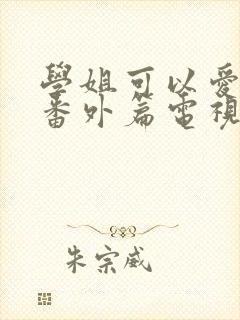 學姐可以愛
番外篇電視
朱宗威